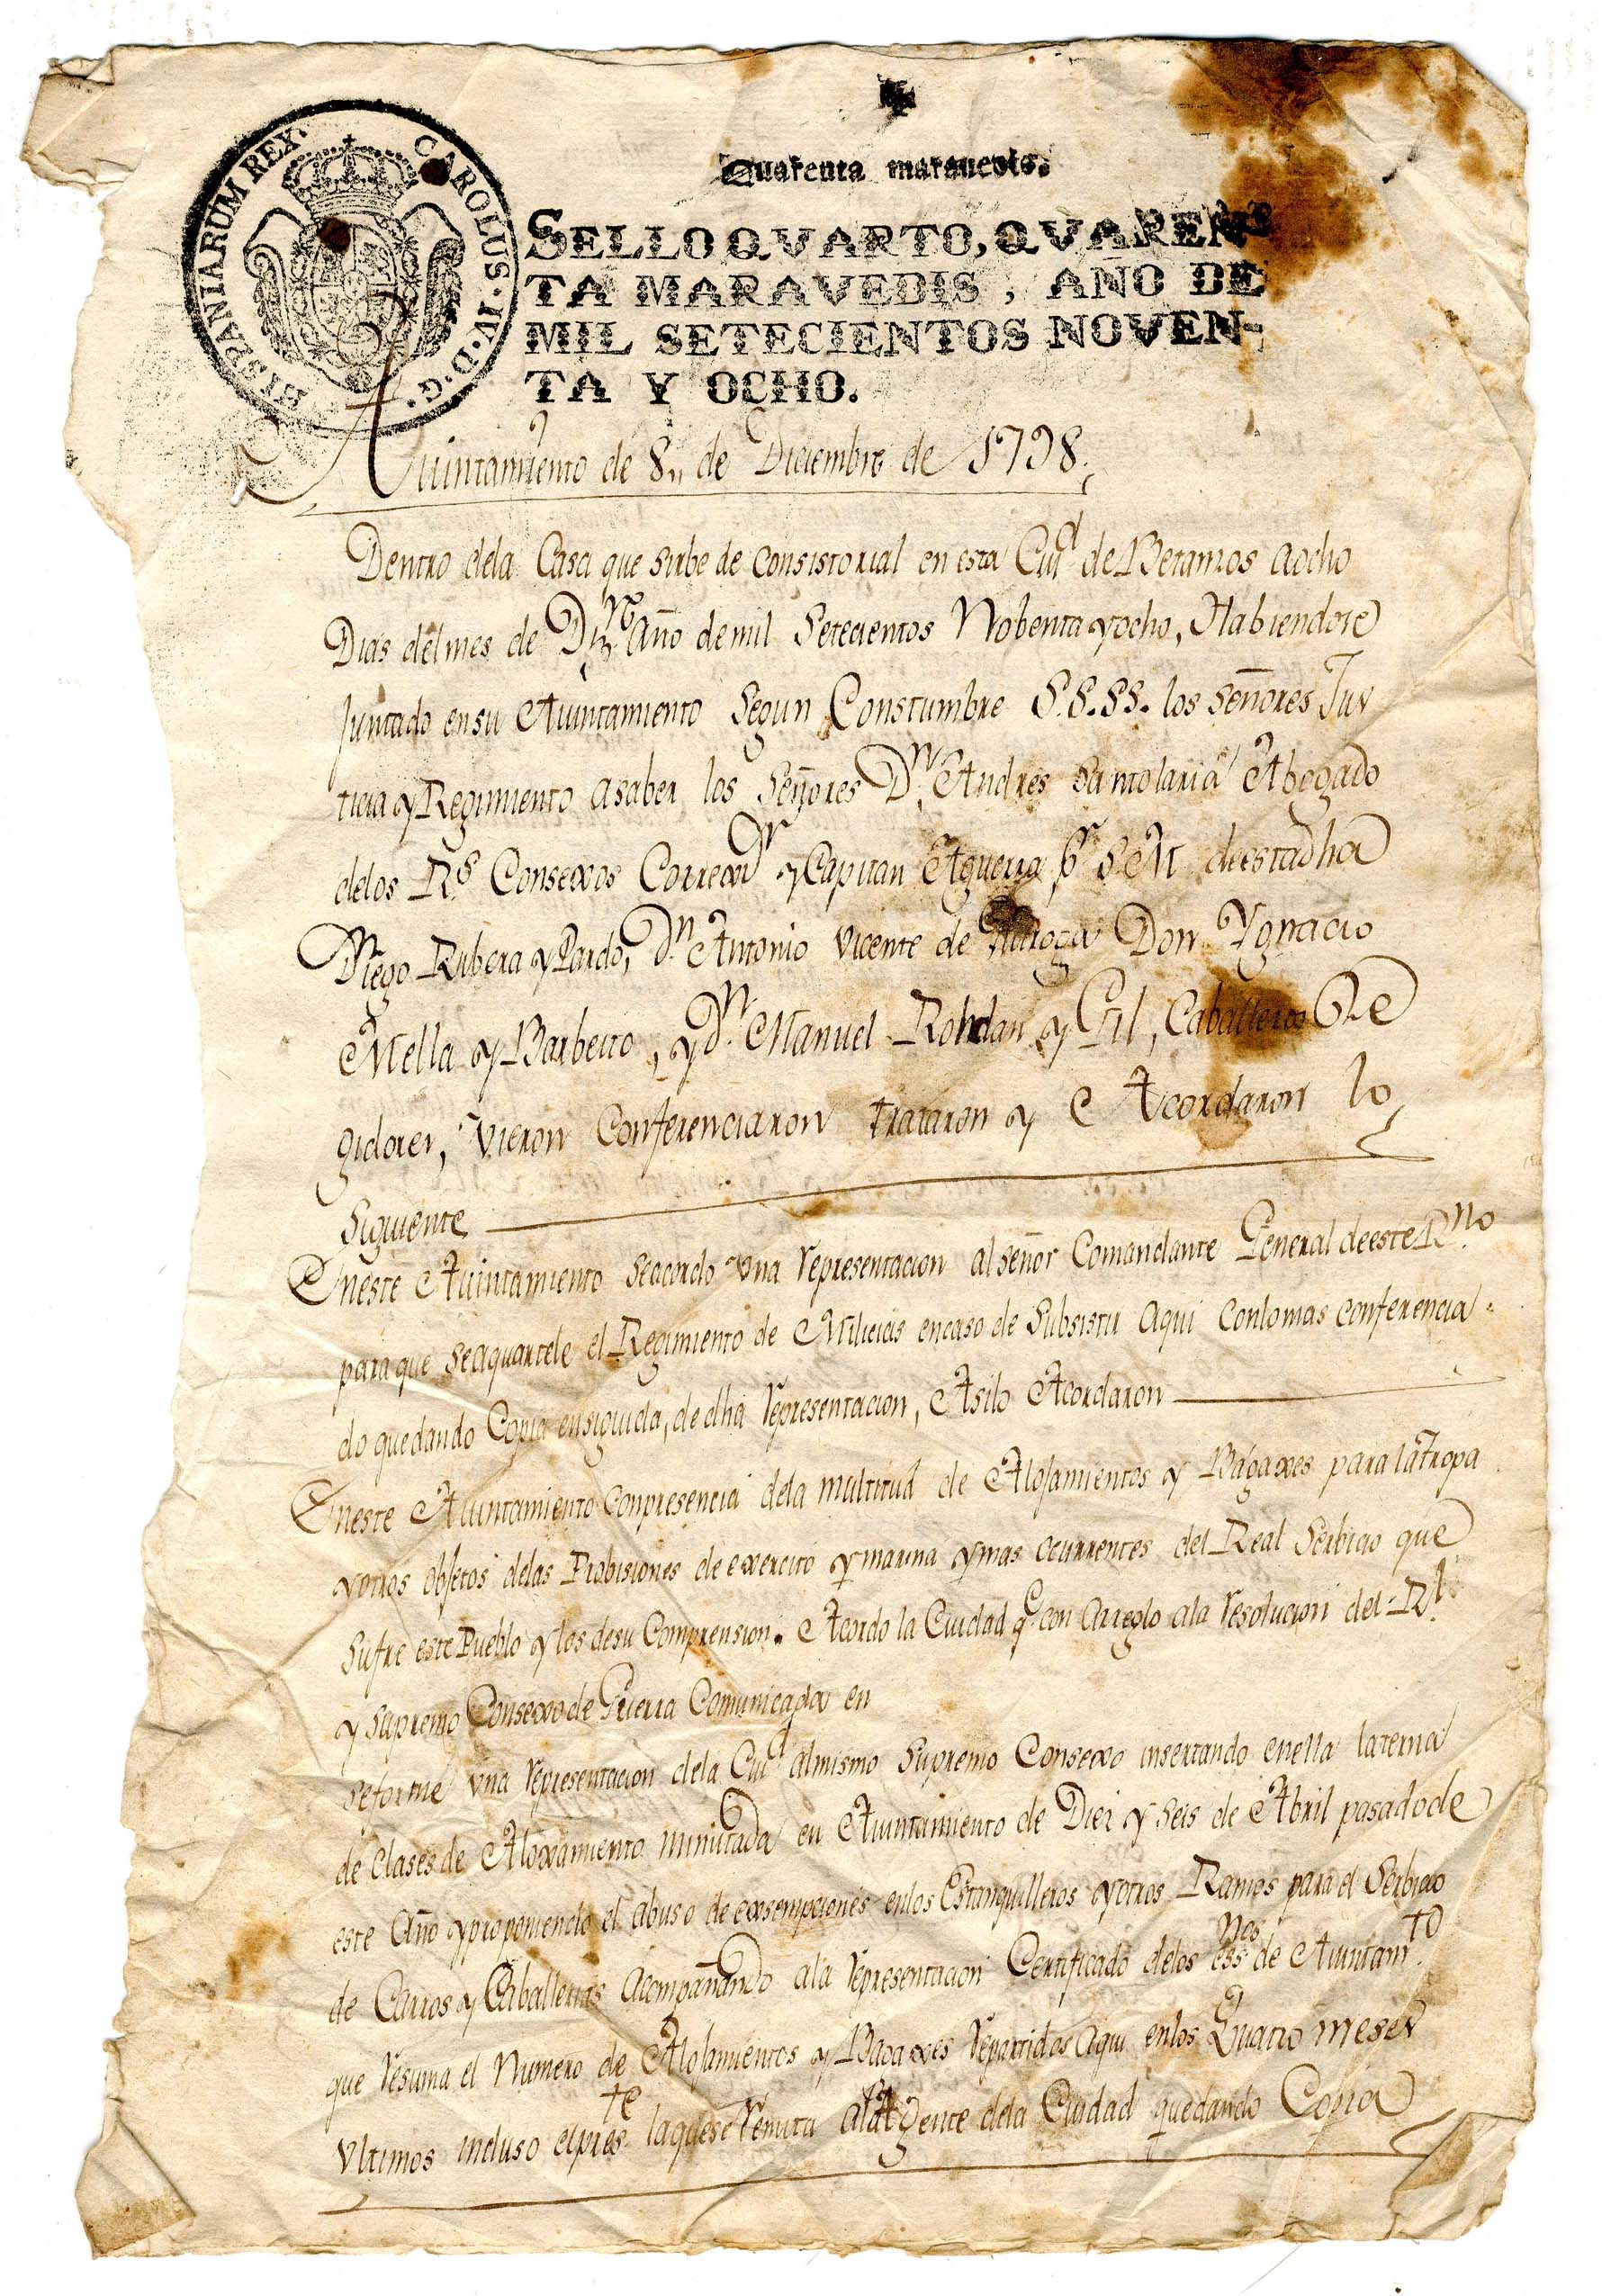 HISPANIARUM REX. CAROLUS.IV.D.G.
Quarenta maravedis.
SELLO QVARTO, QVAREN-
TA MARAVEDIS, AÑO DE
MIL SETECIENTOS NOVEN-
TA Y OCHO.
Aiuintamiento de 8,, de Diciembre de 1798.
Dentro dela Casa que sirbe de Consistorial en esta Ciud de Betanzos aocho
Dias delmes de Dizre Año demil Setecientos Nobenta yocho, Habiendose
juntado ensu Aiuntamiento Segun Constumbre S.S.SS. los Señores Jus
ticia y Regimiento asaber, los Señores Dn. Andres Santolaria Abogado
delos Rs. Consexos Correxor y Capitan Aguerra pr S M deestadha
Diego Ribera y Pardo, Dn. Antonio Vicente de Don Ygnacio
Mella y Barbeito, y Dn. Manuel Roldan y Gil, Caballeros Re
gidores, Vieron Conferenciaron trataron y Acordaron lo
Siguiente
Eneste Aiuintamiento seacordo una representacion al señor Comandante General deeste Rno.
para que seaquartele el Regimiento de Milicias encaso de Subsistir aqui conlomas conferencia-
do quedando Copia enseguida, de dha representacion, Asilo Acordaron
Eneste Aiuntamiento conpresencia dela multitud de Alojamientos y Bágaxes para laTropa
yotros objetos delas Probisiones de exercito y marina ymas ocurrentes del Real Serbicio que
Sufre este Pueblo y los desu Comprension. Acordo la Ciudad qe con arreglo ala resolucion del Rl.
y supremo Consexo de Guerra Comunicada en
seforme una representacion dela Ciud almismo Supremo Consexo insertando enella laterna
de clases de Aloxamiento minutada en Aiuntamiento de Diez y seis de Abril pasado de
este Año yproponiendo el abuso de exsempciones enlos Estanquilleros yotros Ramos para el Serbicio
de Carros y Caballerias acompañando ala representacion Certificado delos essnos de Aiuntamto.
que resuma el Numero de Alojamientos y Bagaxes repartidos aqui enlos Quatro meses
Vltimos incluso elpreste laquese remita alAgente dela Ciudad quedando Copia